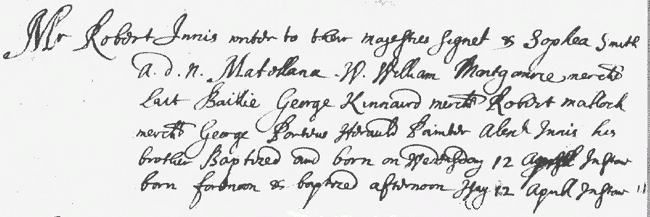 Mr Robert Innis writer to their majesties signet & Sophea Smith
A. D. N. Matellana. W. William Montgomrie mercht
Last Baillie George Kinnaird mercht Robert matlock
mercht George Porteus Herauld Painter Alexr Innis his
brother Baptized and born on Wednesday 12 Aprill Instant
born fornoon & baptized afternoon 12 Aprill Instant